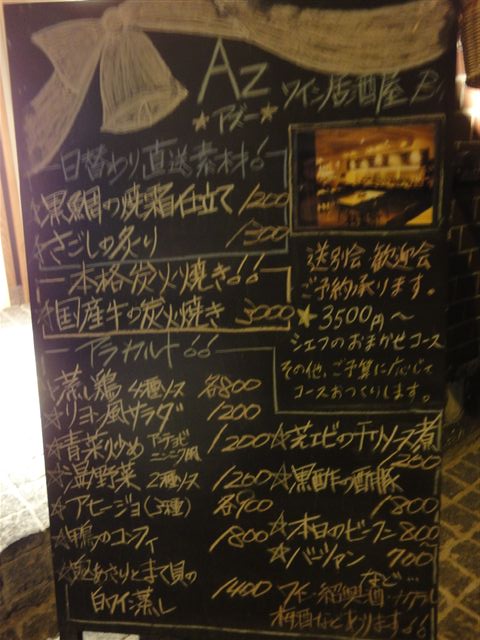 Az
★アズー★ ワイン居酒屋
日替わり直送素材!!
☆黒鯛の焼霜仕立て 1200
☆さごしの炙り 1300
本格炭火焼き!!
☆国産牛の炭火焼き 3000
アラカルト!!
☆蒸し鶏 4種ソース 各800
☆リヨン風サラダ 1200
☆青菜炒め アンチョビニンニク風 1200
温野菜 2種ソース 1200
☆アヒージョ(3種) 各900
☆鴨のコンフィ 1800
あさりとまて貝の
白ワイン蒸し 1400
送別会 歓迎会
ご予約承ります。
★3500円〜
シェフのおまかせコース
その他、ご予算に応じて
コースおつくります。
☆芝エビのチリソース煮
☆黒酢の酢豚
1800
☆本日のビーフン 800
★バーツァン 700
など…
ワイン 紹興酒
梅酒などあります!!